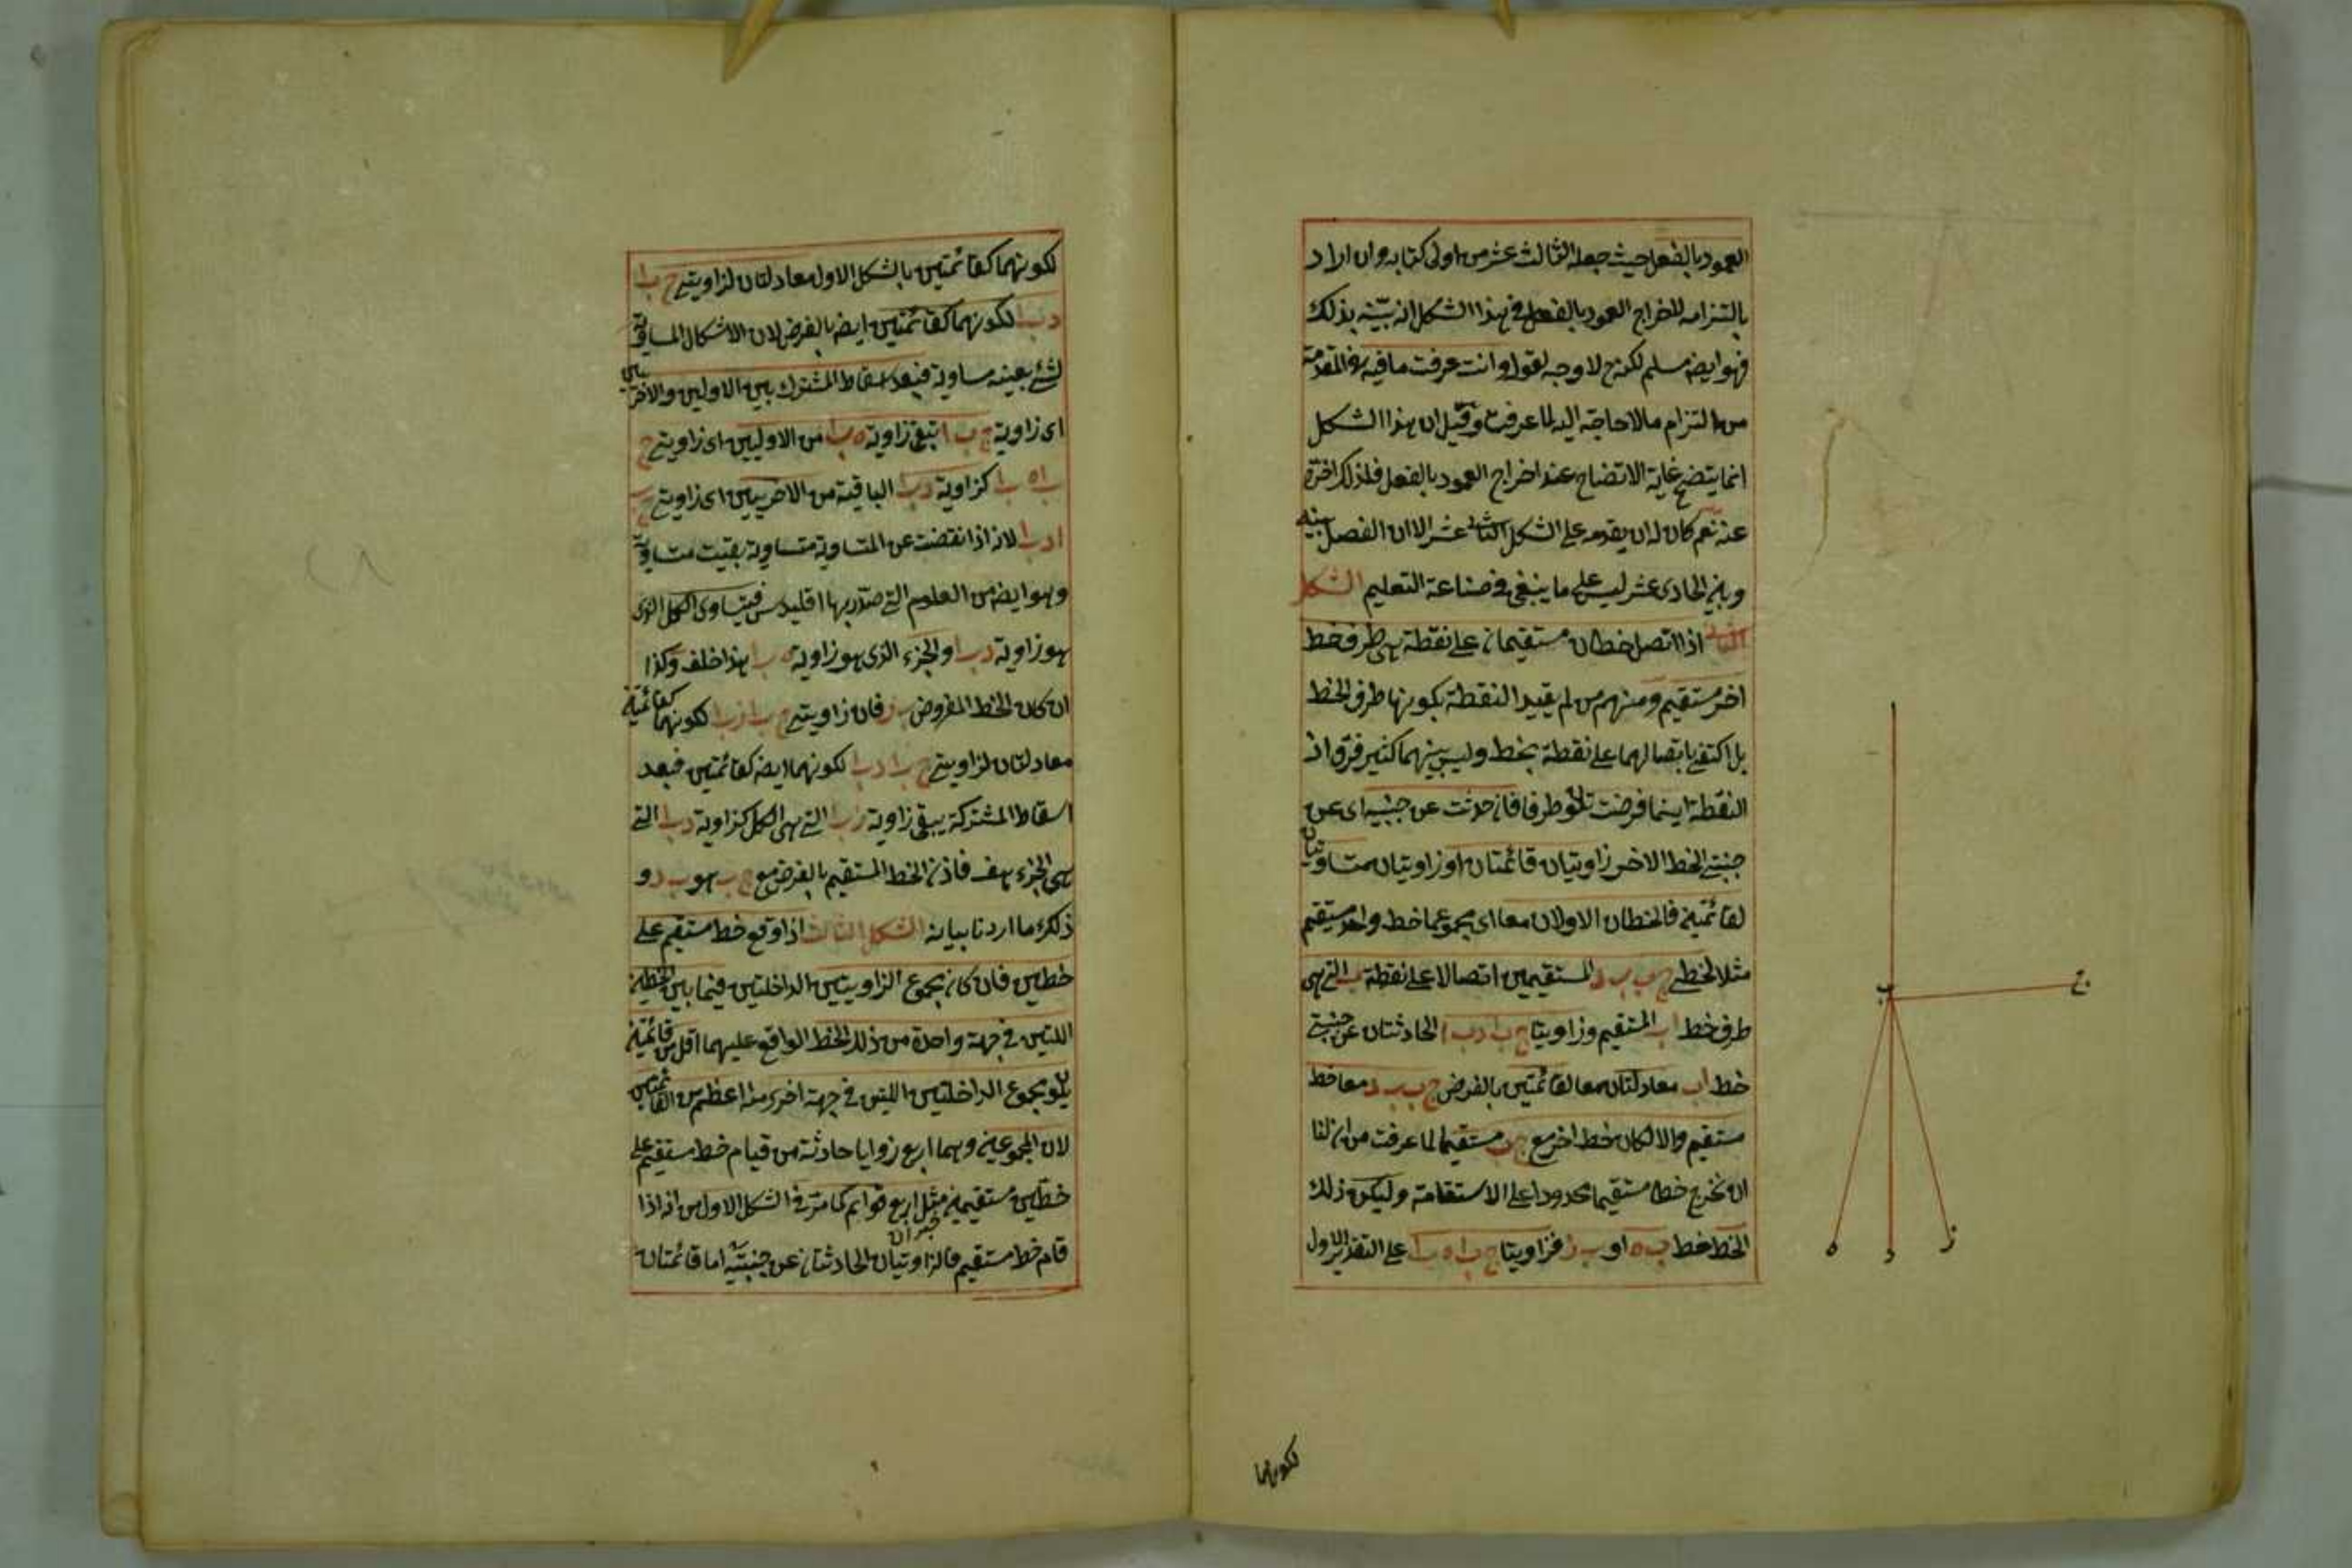 العمود بالفعل حيث جعله الثالث عشر من اولى كتابه وان اراد
بالتزامه للاخراج العمود بالفعل في هذا الشكل انه بيّنه بذلك
فهو ايضه مسلم لكنه ح لا وجه لقوله وانت عرفت ما فيه في المقدمة
من التزام مالا حاجة اليه لما عرفت وقيل ان هذا الشكل
انما يتضح غاية الاتضاح عند اخراج العمود بالفعل فلذلك اخره
عنه نعم كان له ان يقدمه على الشكل الثاني عشر الا ان الفصل بينه
وبين الحادى عشر ليس على ما ينبغي في صناعة التعليم الشكل
الثاني اذا اتصل خطان مستقيمان على نقطة هي طرف خط
اخر مستقيم ومنهم من لم يقيد النقطة بكونها طرف الخط
بل اكتفى باتصالهما على نقطة بخط وليس بينهما كثير فرق اذ
النقطة اينما فرضت تكون طرفا فان حدثت عن جنبيه اى عن
جنبتي الخط الاخر زاويتان قائمتان او زاويتان متساويتان
لقائمتين فالخطان الاولان معا اى مجموعهما خط واحد مستقيم
مثلا لخطي ج ب ب د المستقيمين اتصالا على نقطة ب التي هي
طرف خط ا ب المستقيم وزاويتا ج ب ا د ب ا الحادثتان عن جنبتي
خط ا ب معادلتان معا لقائمتين بالفرض ج ب ب د معا خط
مستقيم والا لكان خط اخر مع ج ب مستقيما لما عرفت من ان لنا
ان نخرج خطا مستقيما محدودا على الاستقامة وليكن ذلك
الخط خط ب ه او ب ز فزاويتا ج ب ا ه ب ا على التقدير الاول
لكونهما
ج
ب
ه
د
ز
لكونهما كقائمتين بالشكل الاول معادلتان لزاويتي ج ب ا
د ب ا لكونهما كقائمتين ايضه بالفرض لان الاشكال المساوية
لشئ بعينه مساوية فبعد اسقاط المشترك بين الاولين والاخريين
اى زاوية ج ب ا تبقى زاوية ه ب ا من الاوليين اى زاويتي ج
ب ا ه ب ا كزاوية د ب ا الباقية من الاخريين اى زاويتي ج ب
ا د ب ا لانه اذا نقصت عن المتساوية متساوية بقيت متساوية
وهو ايضه من العلوم التي صدّر بها اقليدس فيتساوى الكل الذى
هو زاوية د ب ا والجزء الذى هو زاوية ه ب ا هذا خلف وكذا
ان كان الخط المفروض ب ز فان زاويتي ج ب ا ز ب ا لكونهما كقائمتين
معادلتان لزاويتي ج ب ا د ب ا لكونهما ايضه كقائمتين فبعد
اسقاط المشتركة يبقى زاوية ز ب ا التي هي الكل كزاوية د ب ا التي
هي الجزء هف فاذن الخط المستقيم بالفرض مع ج ب هو ب د و
ذلك ما اردنا بيانه الشكل الثالث اذا وقع خط مستقيم على
خطين فان كان مجموع الزاويتين الداخلتين فيما بين الخطين
اللتين في جهة واحدة من ذلك الخط الواقع عليهما اقل من قائمتين
يكون مجموع الداخلتين اللتين في جهة اخرى منه اعظم من القائمتين
لان المجموعين وهما اربع زوايا حادثة من قيام خط مستقيم على
خطين مستقيمين مثل اربع قوائم كما مر في الشكل الاول من انه اذا
قام خط مستقيم فالزاويتان الحادثتان عن جنبتيه اما قائمتان